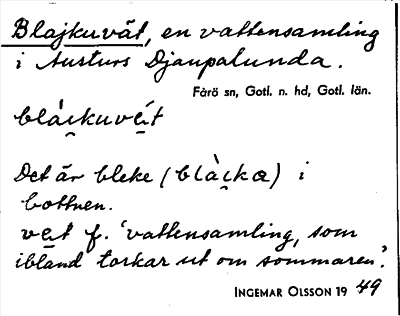 Blajkuvät, en vattensamling
i Austurs Djaupalunda.
Fårö sn, Gotl. n. hd, Gotl. län.
blài̯kuvé̠t
Det är bleke (blài̯kæ) i
bottnen.
ve̠t f. 'vattensamling, som
ibland torkar ut om sommaren'.
INGEMAR OLSSON 19 49